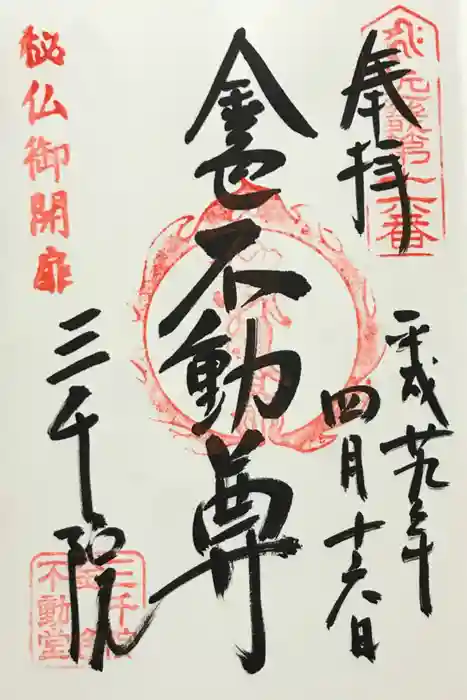 奉拝
平成廿九年
四月十六日
金色不動尊
秘仏御開扉
三千院
三千院
不動堂